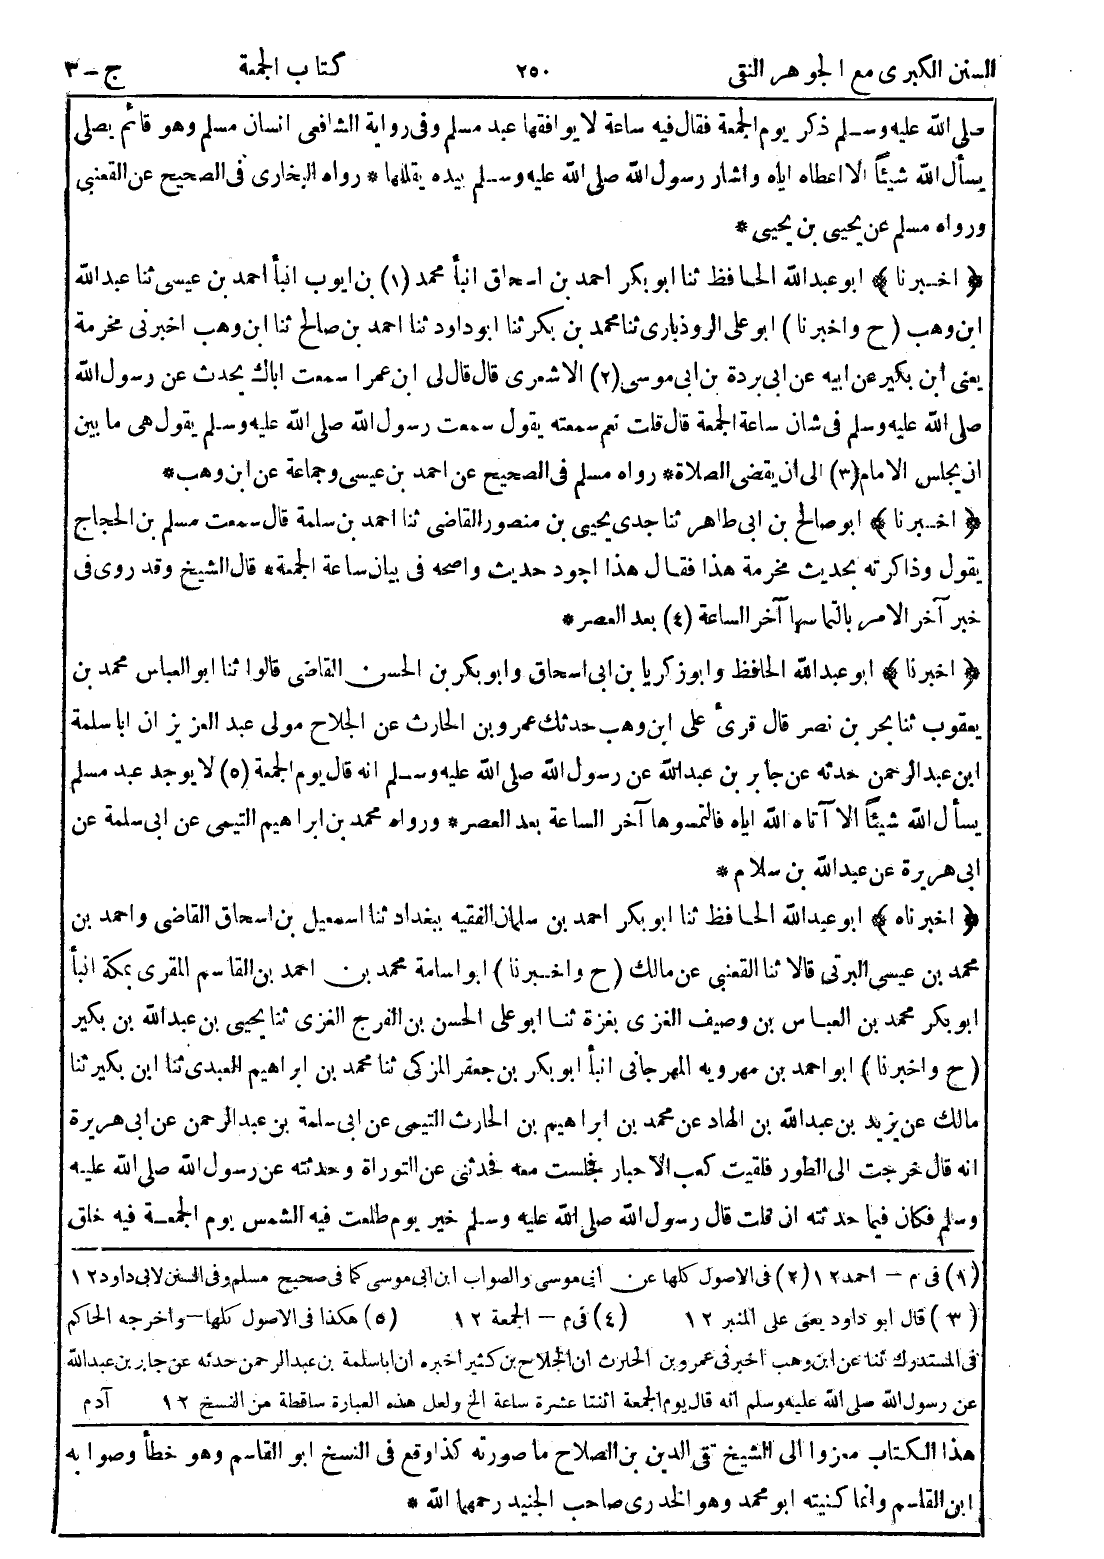 السنن الكبرى مع الجوهر النقى ٢٥٠ كتاب الجمعة ج-٣
صلى الله عليه وسلم ذكر يوم الجمعة فقال فيه ساعة لا يوافقها عبد مسلم وفى رواية الشافعى انسان مسلم وهو قائم يصلى
يسأل الله شيئاً الا اعطاه اياه واشار رسول الله صلى الله عليه وسلم بيده يقللها * رواه البخارى فى الصحيح عن القعنبى
ورواه مسلم عن يحيى بن يحيى *
﴿ اخبرنا ﴾ ابو عبد الله الحافظ ثنا ابو بكر احمد بن اسحاق انبأ محمد (١) بن ايوب انبأ احمد بن عيسى ثنا عبد الله
ابن وهب ( ح واخبرنا ) ابو على الروذبارى ثنا محمد بن بكر ثنا ابو داود ثنا احمد بن صالح ثنا ابن وهب اخبرنى مخرمة
يعنى ابن بكير عن ابيه عن ابى بردة بن ابى موسى (٢) الاشعرى قال قال لى ابن عمر اسمعت اباك يحدث عن رسول الله
صلى الله عليه وسلم فى شان ساعة الجمعة قال قلت نعم سمعته يقول سمعت رسول الله صلى الله عليه وسلم يقول هى ما بين
ان يجلس الامام (٣) الى ان يقضى الصلاة * رواه مسلم فى الصحيح عن احمد بن عيسى وجماعة عن ابن وهب *
﴿ اخبرنا ﴾ ابو صالح بن ابى طاهر ثنا جدى يحيى بن منصور القاضى ثنا احمد بن سلمة قال سمعت مسلم بن الحجاج
يقول وذاكرته بحديث مخرمة هذا فقال هذا اجود حديث واصحه فى بيان ساعة الجمعة * قال الشيخ وقد روى فى
خبر آخر الامر بالتماسها آخر الساعة (٤) بعد العصر *
﴿ اخبرنا ﴾ ابو عبد الله الحافظ وابو زكريا بن ابى اسحاق وابو بكر بن الحسن القاضى قالوا ثنا ابو العباس محمد بن
يعقوب ثنا بحر بن نصر قال قرئ على ابن وهب حدثك عمرو بن الحارث عن الجلاح مولى عبد العزيز ان ابا سلمة
ابن عبد الرحمن حدثه عن جابر بن عبد الله عن رسول الله صلى الله عليه وسلم انه قال يوم الجمعة (٥) لا يوجد عبد مسلم
يسأل الله شيئاً الا آتاه الله اياه فالتمسوها آخر الساعة بعد العصر * ورواه محمد بن ابراهيم التيمى عن ابى سلمة عن
ابى هريرة عن عبد الله بن سلام *
﴿ اخبرناه ﴾ ابو عبد الله الحافظ ثنا ابو بكر احمد بن سلمان الفقيه ببغداد ثنا اسمعيل بن اسحاق القاضى واحمد بن
محمد بن عيسى البرتى قالا ثنا القعنبى عن مالك ( ح واخبرنا ) ابو اسامة محمد بن احمد بن القاسم المقرى بمكة انبأ
ابو بكر محمد بن العباس بن وصيف الغزى بغزة ثنا ابو على الحسن بن الفرج الغزى ثنا يحيى بن عبد الله بن بكير
( ح واخبرنا ) ابو احمد بن مهرويه المهرجانى انبأ ابو بكر بن جعفر المزكى ثنا محمد بن ابراهيم العبدى ثنا ابن بكير ثنا
مالك عن يزيد بن عبد الله بن الهاد عن محمد بن ابراهيم بن الحارث التيمى عن ابى سلمة بن عبد الرحمن عن ابى هريرة
انه قال خرجت الى الطور فلقيت كعب الاحبار فجلست معه فحدثنى عن التوراة وحدثته عن رسول الله صلى الله عليه
وسلم فكان فيما حدثته ان قلت قال رسول الله صلى الله عليه وسلم خير يوم طلعت فيه الشمس يوم الجمعة فيه خلق
(١) فى م - احمد ١٢ (٢) فى الاصول كلها عن ابى موسى والصواب ابن ابى موسى كما فى صحيح مسلم وفى السنن لابى داود ١٢
(٣) قال ابو داود يعنى على المنبر ١٢ (٤) فى م - الجمعة ١٢ (٥) هكذا فى الاصول كلها - واخرجه الحاكم
فى المستدرك ثنا عن ابن وهب اخبرنى عمرو بن الحارث ان الجلاح بن كثير اخبره ان ابا سلمة بن عبد الرحمن حدثه عن جابر بن عبد الله
عن رسول الله صلى الله عليه وسلم انه قال يوم الجمعة اثنتا عشرة ساعة الخ ولعل هذه العبارة ساقطة من النسخ ١٢ آدم
هذا الكتاب معزوا الى الشيخ تقى الدين بن الصلاح ما صورته كذا وقع فى النسخ ابو القاسم وهو خطأ وصوابه
ابن القاسم وانما كنيته ابو محمد وهو الخدرى صاحب الجنيد رحمهما الله *